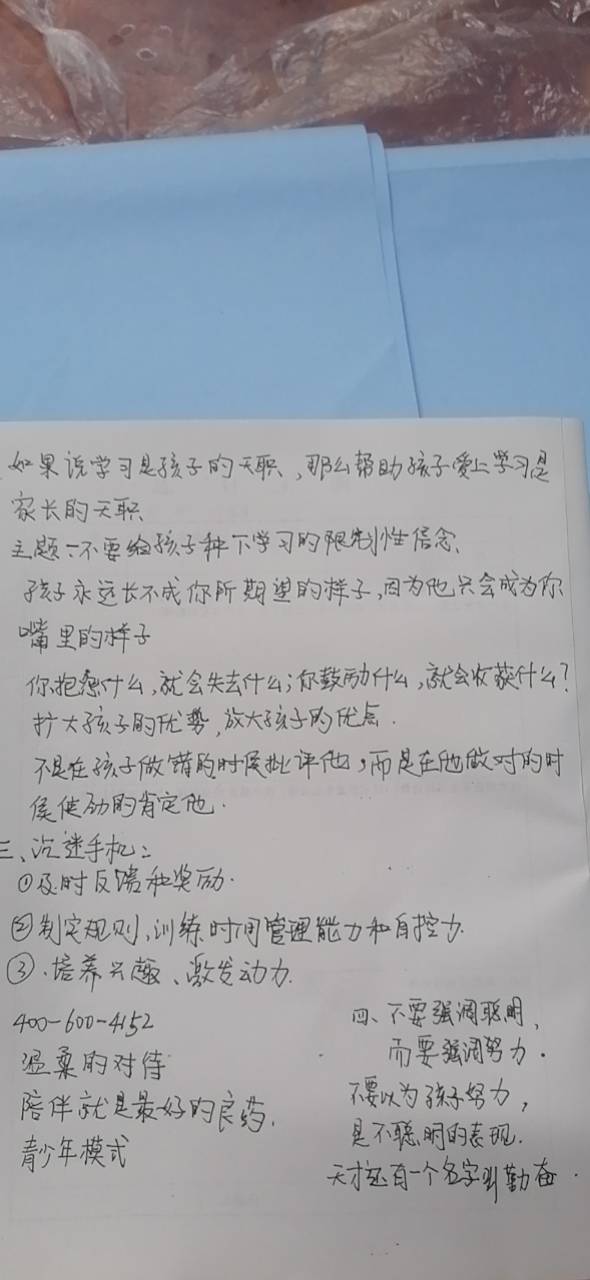 如果说学习是孩子的天职，那么帮助孩子爱上学习是
家长的天职
主题：不要给孩子种下学习的限制性信念、
孩子永远长不成你所期望的样子，因为他只会成为你
嘴里的样子
你抱怨什么，就会失去什么；你鼓励什么，就会收获什么？
扩大孩子的优势，放大孩子的优点．
不是在孩子做错的时侯批评他，而是在他做对的时
侯使劲的肯定他．
三、沉迷手机：
①及时反馈和奖励．
②制定规则、训练时间管理能力和自控力．
③．培养兴趣、激发动力．
400-600-4152
温柔的对待
陪伴就是最好的良药．
青少年模式
四、不要强调聪明，
而要强调努力．
不要以为孩子努力，
是不聪明的表现．
天才还有一个名字叫勤奋．